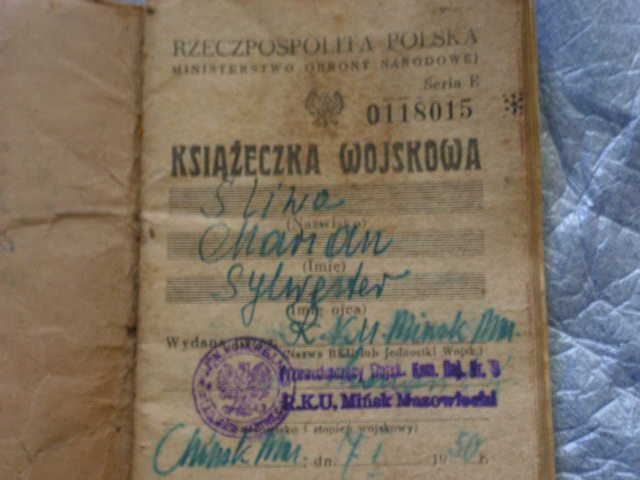 RZECZPOSPOLITA POLSKA
MINISTERSTWO OBRONY NARODOWEJ
Seria E
0118015
KSIĄŻECZKA WOJSKOWA
Śliwa
(Nazwisko)
Marian
(Imię)
Sylwester
(Imię ojca)
Wydana przez R.K.U Mińsk Maz.
(Nazwa RKU lub Jednostki Wojsk.)
Przewodniczący Wojsk. Kom. Rej. Nr. 3
R.K.U. Mińsk Mazowiecki
i stopień wojskowy)
Mińsk Maz. dn. 7 I 1950 r.